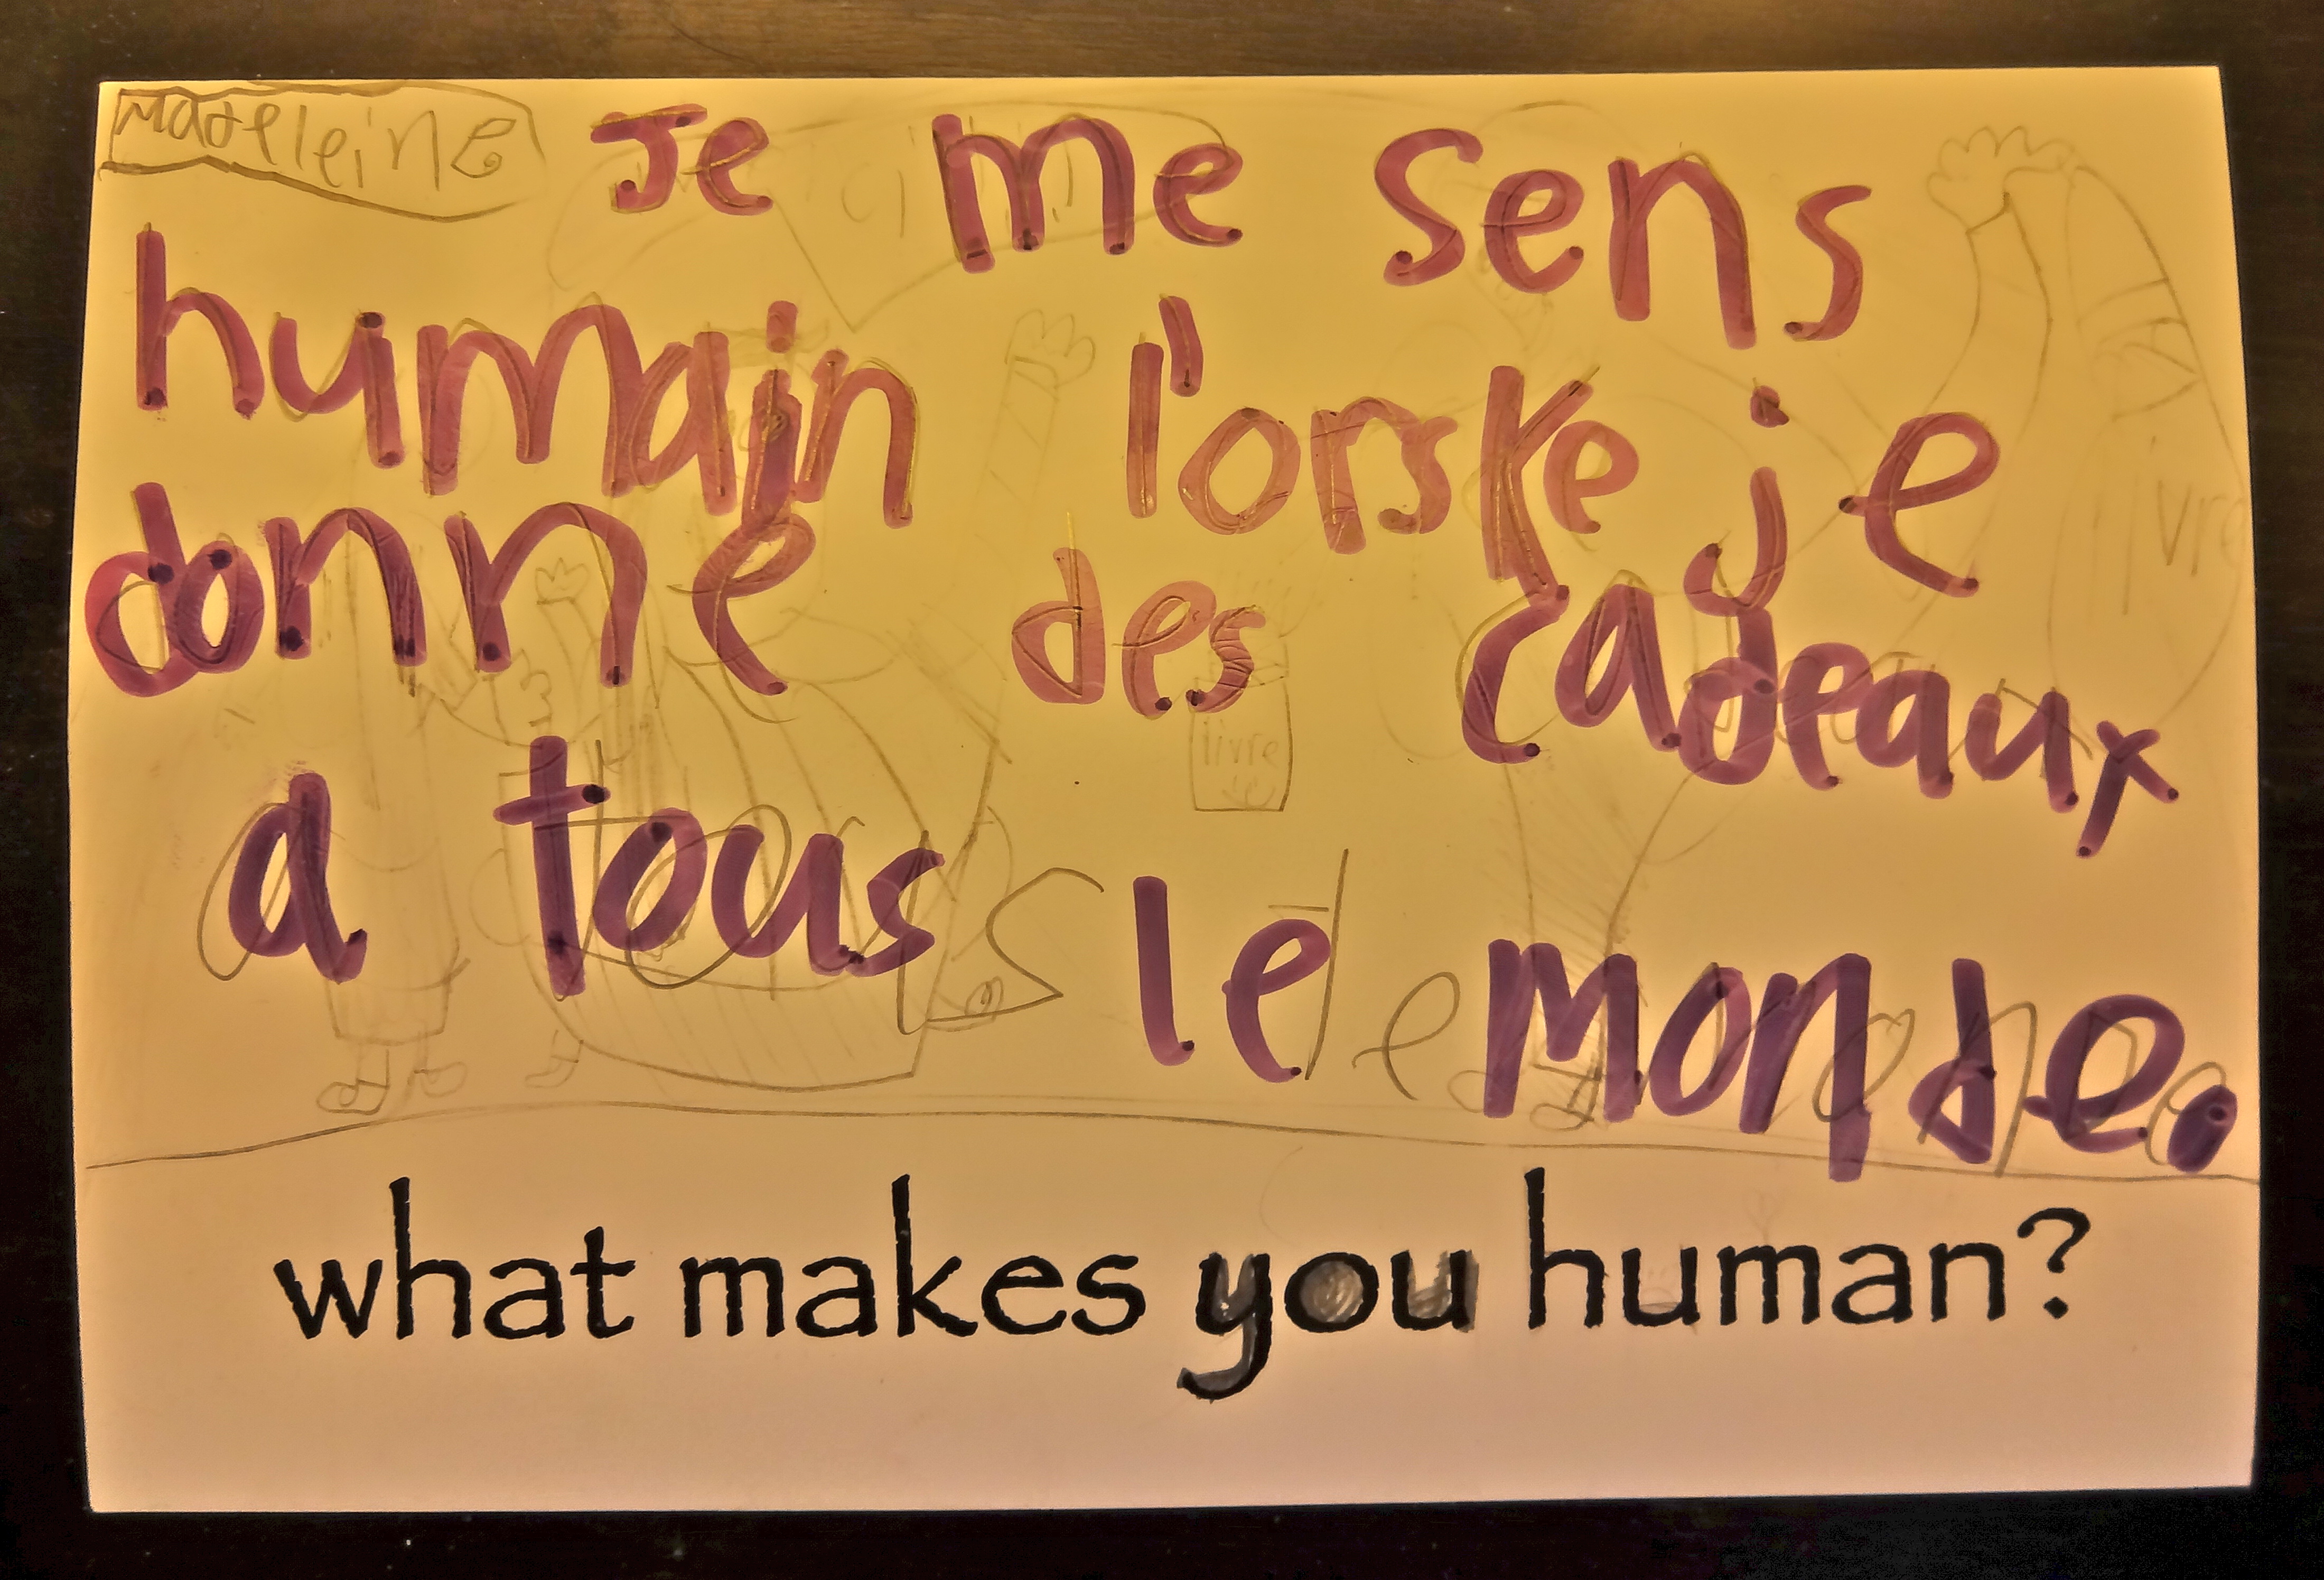 Madeleine
Je me sens
humain l'orske je
donne des cadeaux
a tous le monde.
livre
livre
what makes you human?